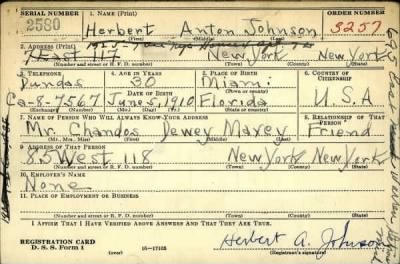 SERIAL NUMBER 1. NAME (Print) ORDER NUMBER
2580 Herbert Anton Johnson 3257
(First) (Middle) (Last)
2. ADDRESS (Print)
New York New York
(Number and street or R. F. D. number) (Town) (County) (State)
3. TELEPHONE 4. AGE IN YEARS 5. PLACE OF BIRTH 6. COUNTRY OF CITIZENSHIP
30 Miami
DATE OF BIRTH (Town or county)
Ca-8-7567 June 5, 1910 Florida U.S.A
(Exchange) (Number) (Mo.) (Day) (Yr.) (State or country)
7. NAME OF PERSON WHO WILL ALWAYS KNOW YOUR ADDRESS 8. RELATIONSHIP OF THAT PERSON
Mr. Chandos Dewey Maxey Friend
(Mr., Mrs., Miss) (First) (Middle) (Last)
9. ADDRESS OF THAT PERSON
85 West 118 New York New York
(Number and street or R. F. D. number) (Town) (County) (State)
10. EMPLOYER'S NAME
None
11. PLACE OF EMPLOYMENT OR BUSINESS
(Number and street or R. F. D. number) (Town) (County) (State)
I AFFIRM THAT I HAVE VERIFIED ABOVE ANSWERS AND THAT THEY ARE TRUE.
REGISTRATION CARD
D. S. S. Form 1 16-17105 Herbert A. Johnson
(Registrant's signature)